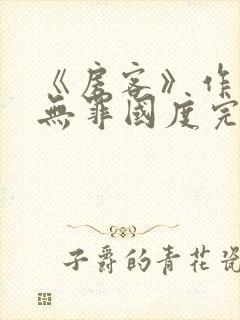 《房客》作
無罪國度完
子爵的青花瓷